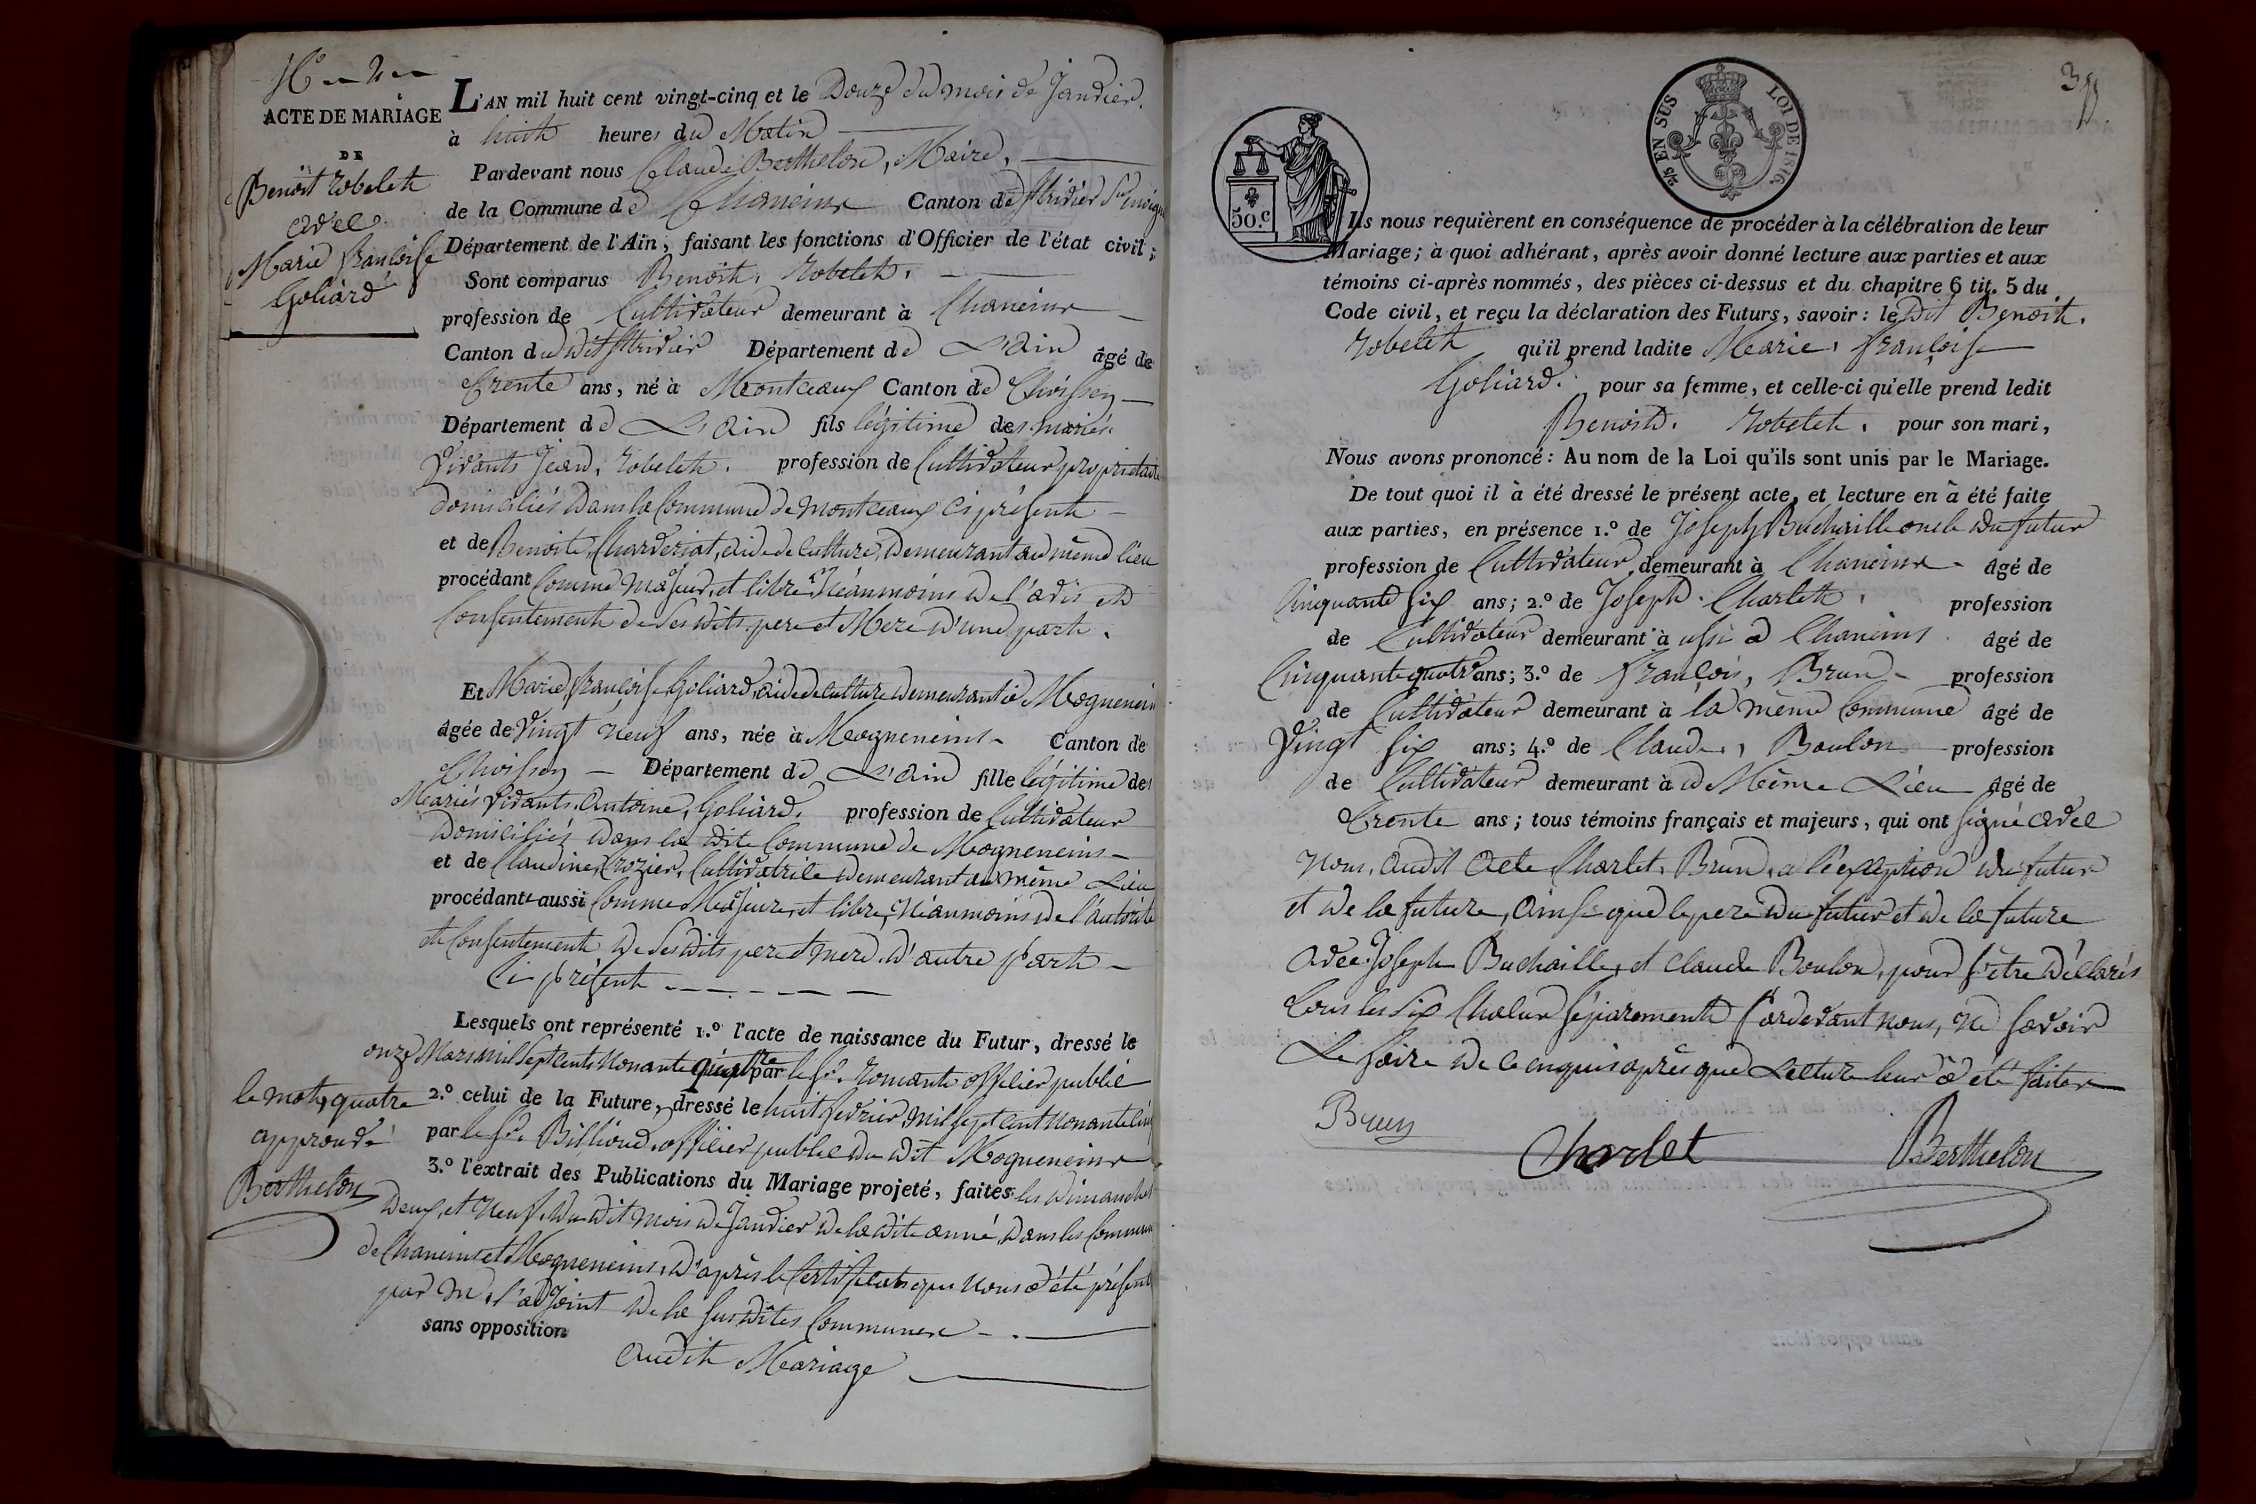 ACTE DE MARIAGE
DE
Benoît Robelet
avec
Marie françoise
Goliard
L'AN mil huit cent vingt-cinq et le Douze du mois de Janvier.
à huit heures du Matin
Pardevant nous Claude Berthelon, Maire,
de la Commune de Chaneins Canton de
Département de l'Ain, faisant les fonctions d'Officier de l'état civil;
Sont comparus Benoît, Robelet,
profession de Cultivateur demeurant à Chaneins
Canton du dit Département de L'Ain âgé de
trente ans, né à Montceaux Canton de Thoissey
Département de L'Ain fils légitime des mariés
vivants Jean, Robelet. profession de Cultivateur propriétaire
domiciliés dans la Commune de Montceaux ci présent
et de Benoite, Charderiat, aide de culture, demeurant au même lieu
procédant Comme Majeur, et libre, Néanmoins de l'avis et
Consentement de Ses dits pere et Mere d'une part.
Et Marie françoise Goliard, aide de culture demeurant à Mogneneins
âgée de vingt neuf ans, née à Mogneneins Canton de
Thoissey Département de L'Ain fille légitime des
Mariés Vivants, Antoine, Goliard. profession de Cultivateur
Domiciliés dans la dite Commune de Mogneneins
et de Claudine, Crozier, Cultivatrice demeurant au même Lieu
procédante aussi Comme Majeure, et libre, Néanmoins de l'autorité
et Consentement de Ses dits pere et mere d'autre part
Ci présent
Lesquels ont représenté 1.º l'acte de naissance du Futur, dressé le
onze Mars mil Sept cent Nonante quatre par le Sr. Romante officier public
2.º celui de la Future, dressé le huit fevrier mil Sept cent Nonante cinq
par le Sr. Billioud, officier public du dit Mogneneins
3.º l'extrait des Publications du Mariage projeté, faites les dimanches
deux, et Neuf, du dit mois de Janvier de la dite année, dans les Communes
de Chaneins et Mogneneins, d'après le Certificat que Nous a été présenté
par Mr. l'adjoint de la Sus dites Communes
sans opposition
audit Mariage
le mot, quatre
approuvé
Berthelon
50.c
2/5 EN SUS LOI DE 1816.
Ils nous requièrent en conséquence de procéder à la célébration de leur
Mariage; à quoi adhérant, après avoir donné lecture aux parties et aux
témoins ci-après nommés, des pièces ci-dessus et du chapitre 6 tit. 5 du
Code civil, et reçu la déclaration des Futurs, savoir: le dit Benoit,
Robelet qu'il prend ladite Marie, françoise
Goliard. pour sa femme, et celle-ci qu'elle prend ledit
Benoit. Robelet. pour son mari,
Nous avons prononcé: Au nom de la Loi qu'ils sont unis par le Mariage.
De tout quoi il à été dressé le présent acte, et lecture en à été faite
aux parties, en présence 1.º de Joseph Buchaille oncle du futur
profession de Cultivateur, demeurant à Chaneins âgé de
Cinquante six ans; 2.º de Joseph. Charlet. profession
de Cultivateur demeurant à ussi a Chaneins âgé de
Cinquante quatre ans; 3.º de françois, Brun profession
de Cultivateur demeurant à la même Commune âgé de
Vingt six ans; 4.º de Claude, Boulon profession
de Cultivateur demeurant à u Même Lieu âgé de
Trente ans; tous témoins français et majeurs, qui ont signé avec
Nous, audit acte Charlet, Brun, a l'exception du futur
et de la future, ainsi que le pere du futur et de la future
avec Joseph Buchaille, et Claude Boulon, pour s'être déclarés
tous les six Chacun séparément Pardevant nous, Ne savoir
Le faire de ce enquis après que Lecture leur a été faite
Brun
Charlet
Berthelon